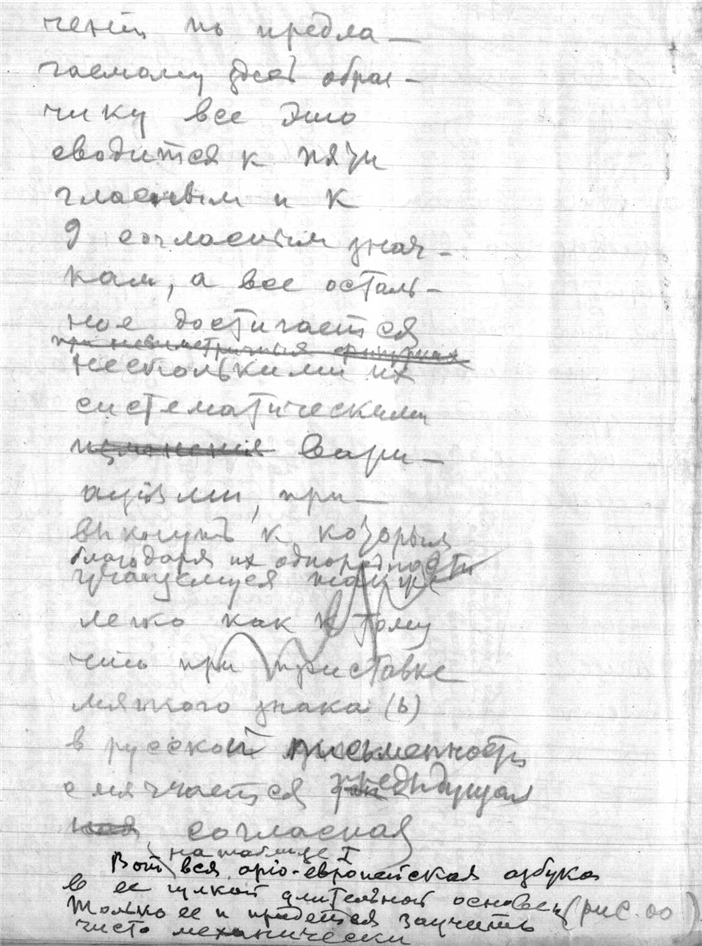 чент по предла-
гаемому здесь образ-
чику все это
сводится к пяти
гласным и к
9 согласным знач-
кам, а все осталь-
ное достигается
несколькими их
систематическими
изменения вари-
ациями, при-
выкнуть к которым
благодаря их однородности
учащемуся также
легко как к тому
что при приставке
мягкого знака (ь)
в русской письменности
смягчается предыдущая
согласная
на таблице I
Вот вся арiо-европейская азбука
в ее цикой длительной основе (рис. 00)
Только ее и придется заучить
чисто механически